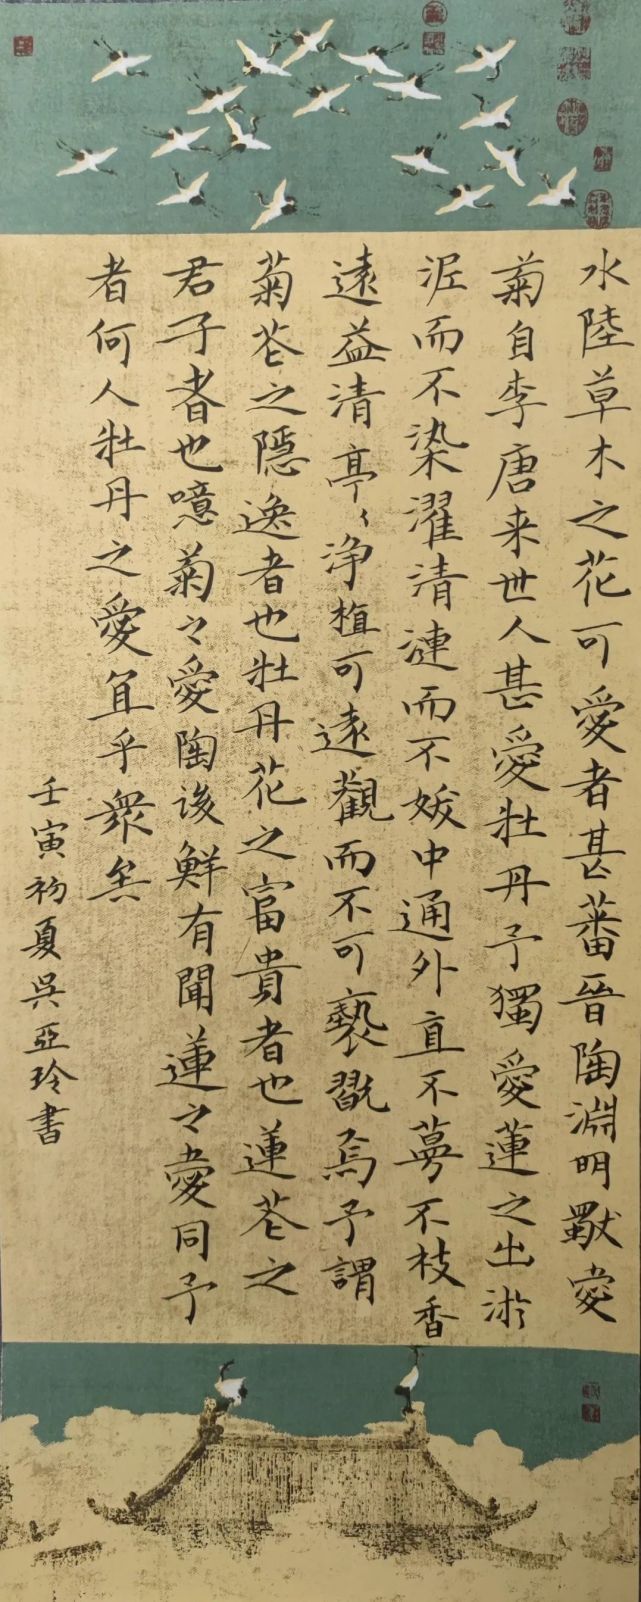 水陸草木之花可愛者甚蕃晉陶淵明獨愛
菊自李唐来世人甚愛牡丹予獨愛蓮之出淤
泥而不染濯清漣而不妖中通外直不蔓不枝香
遠益清亭々净植可遠觀而不可褻翫焉予謂
菊花之隱逸者也牡丹花之富貴者也蓮花之
君子者也噫菊々愛陶後鮮有聞蓮々愛同予
者何人牡丹之愛宜乎衆矣
壬寅初夏吳亞玲書